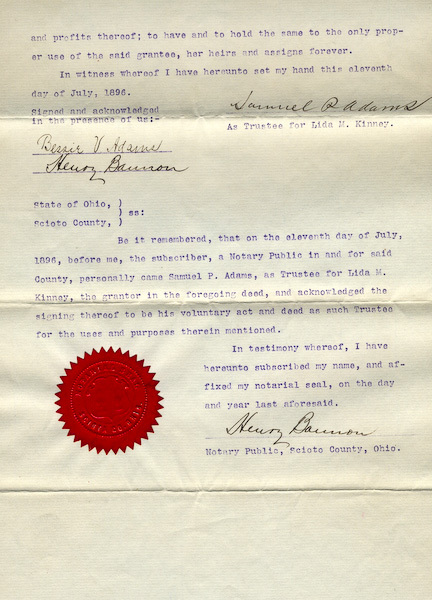 and profits thereof; to have and to hold the same to the only prop-
er use of the said grantee, her heirs and assigns forever.
In witness whereof I have hereunto set my hand this eleventh
day of July, 1896.
Signed and acknowledged
in the presence of us:-
Samuel P Adams
As Trustee for Lida M. Kinney.
Bessie V Adams
Henry Bannon
State of Ohio, )
) ss:
Scioto County, )
Be it remembered, that on the eleventh day of July,
1896, before me, the subscriber, a Notary Public in and for said
County, personally came Samuel P. Adams, as Trustee for Lida M.
Kinney, the grantor in the foregoing deed, and acknowledged the
signing thereof to be his voluntary act and deed as such Trustee
for the uses and purposes therein mentioned.
In testimony whereof, I have
hereunto subscribed my name, and af-
fixed my notarial seal, on the day
and year last aforesaid.
Henry Bannon
Notary Public, Scioto County, Ohio.